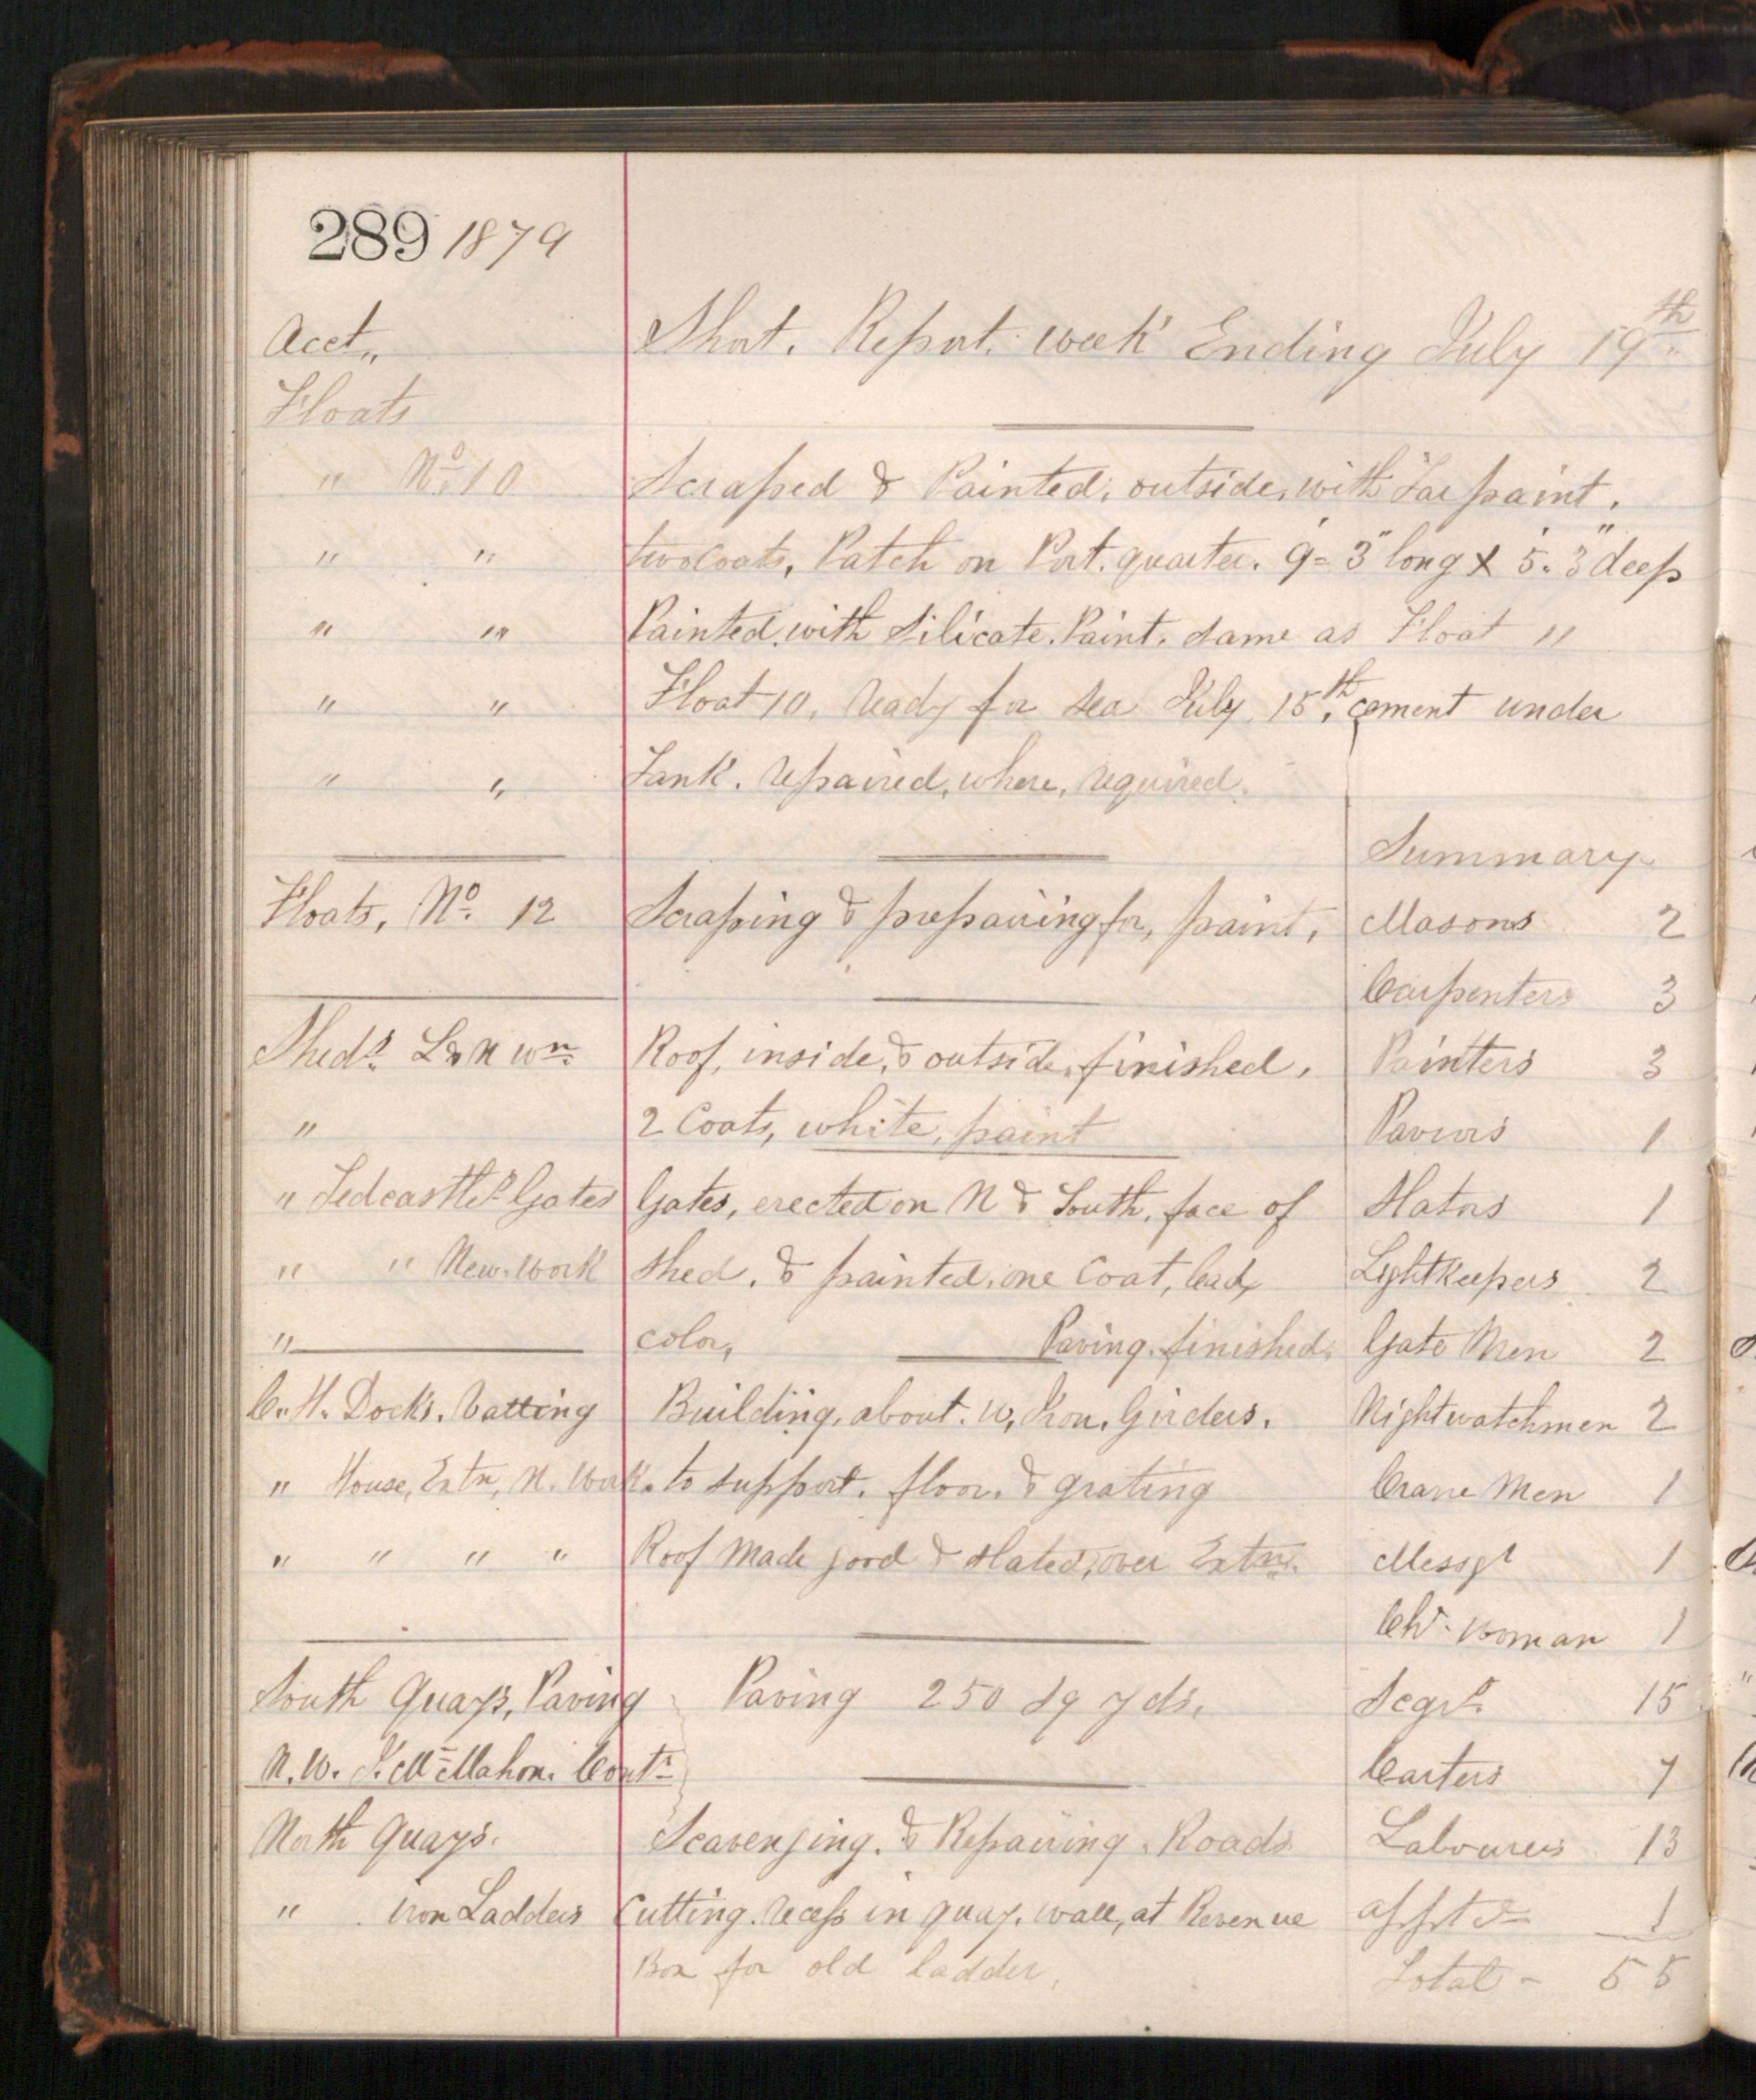 289 1879
Acct,, Short. Report. week Ending July 19th
Floats
" No. 10 Scraped & Painted, outside, with Tar paint,
" " two Coats, Patch on Port. quarter. 9'= 3" long X 5'. 3" deep
" " Painted with Silicate. Paint. same as Float 11
" " Float 10, ready for sea July 15th, cement under
" " Tank. repaired, where, required.
Summary
Floats, No. 12 Scraping & prepairing for, paint, Masons 2
Carpenters 3
Sheds. L & N Wn. Roof, inside, & outside, finished, Painters 3
" 2 Coats, white, paint Paviors 1
" Tedcastles Gates Gates, erected on N & South, face of Slators 1
" " New. Work shed. & painted, one Coat, lead, Lightkeepers 2
" color, Paving. finished, Gate Men 2
C. H. Docks. Vatting Building, about. W, Iron, Girders. Nightwatchmen 2
" House, Extn, N. Work. to support. floor. & grating Crane Men 1
" " " " Roof Made good & slated, over Extn. Messgr 1
Chr. woman 1
South Quays, Paving Paving 250 Sq yds, Scgrs. 15
N. W. J. McMahon. Contr. Carters 7
North Quays. Scavenging. & Repairing. Roads. Labourers 13
" Iron Ladders Cutting. recess in quay. wall, at Revenue 1
Box for old ladder, Total - 55